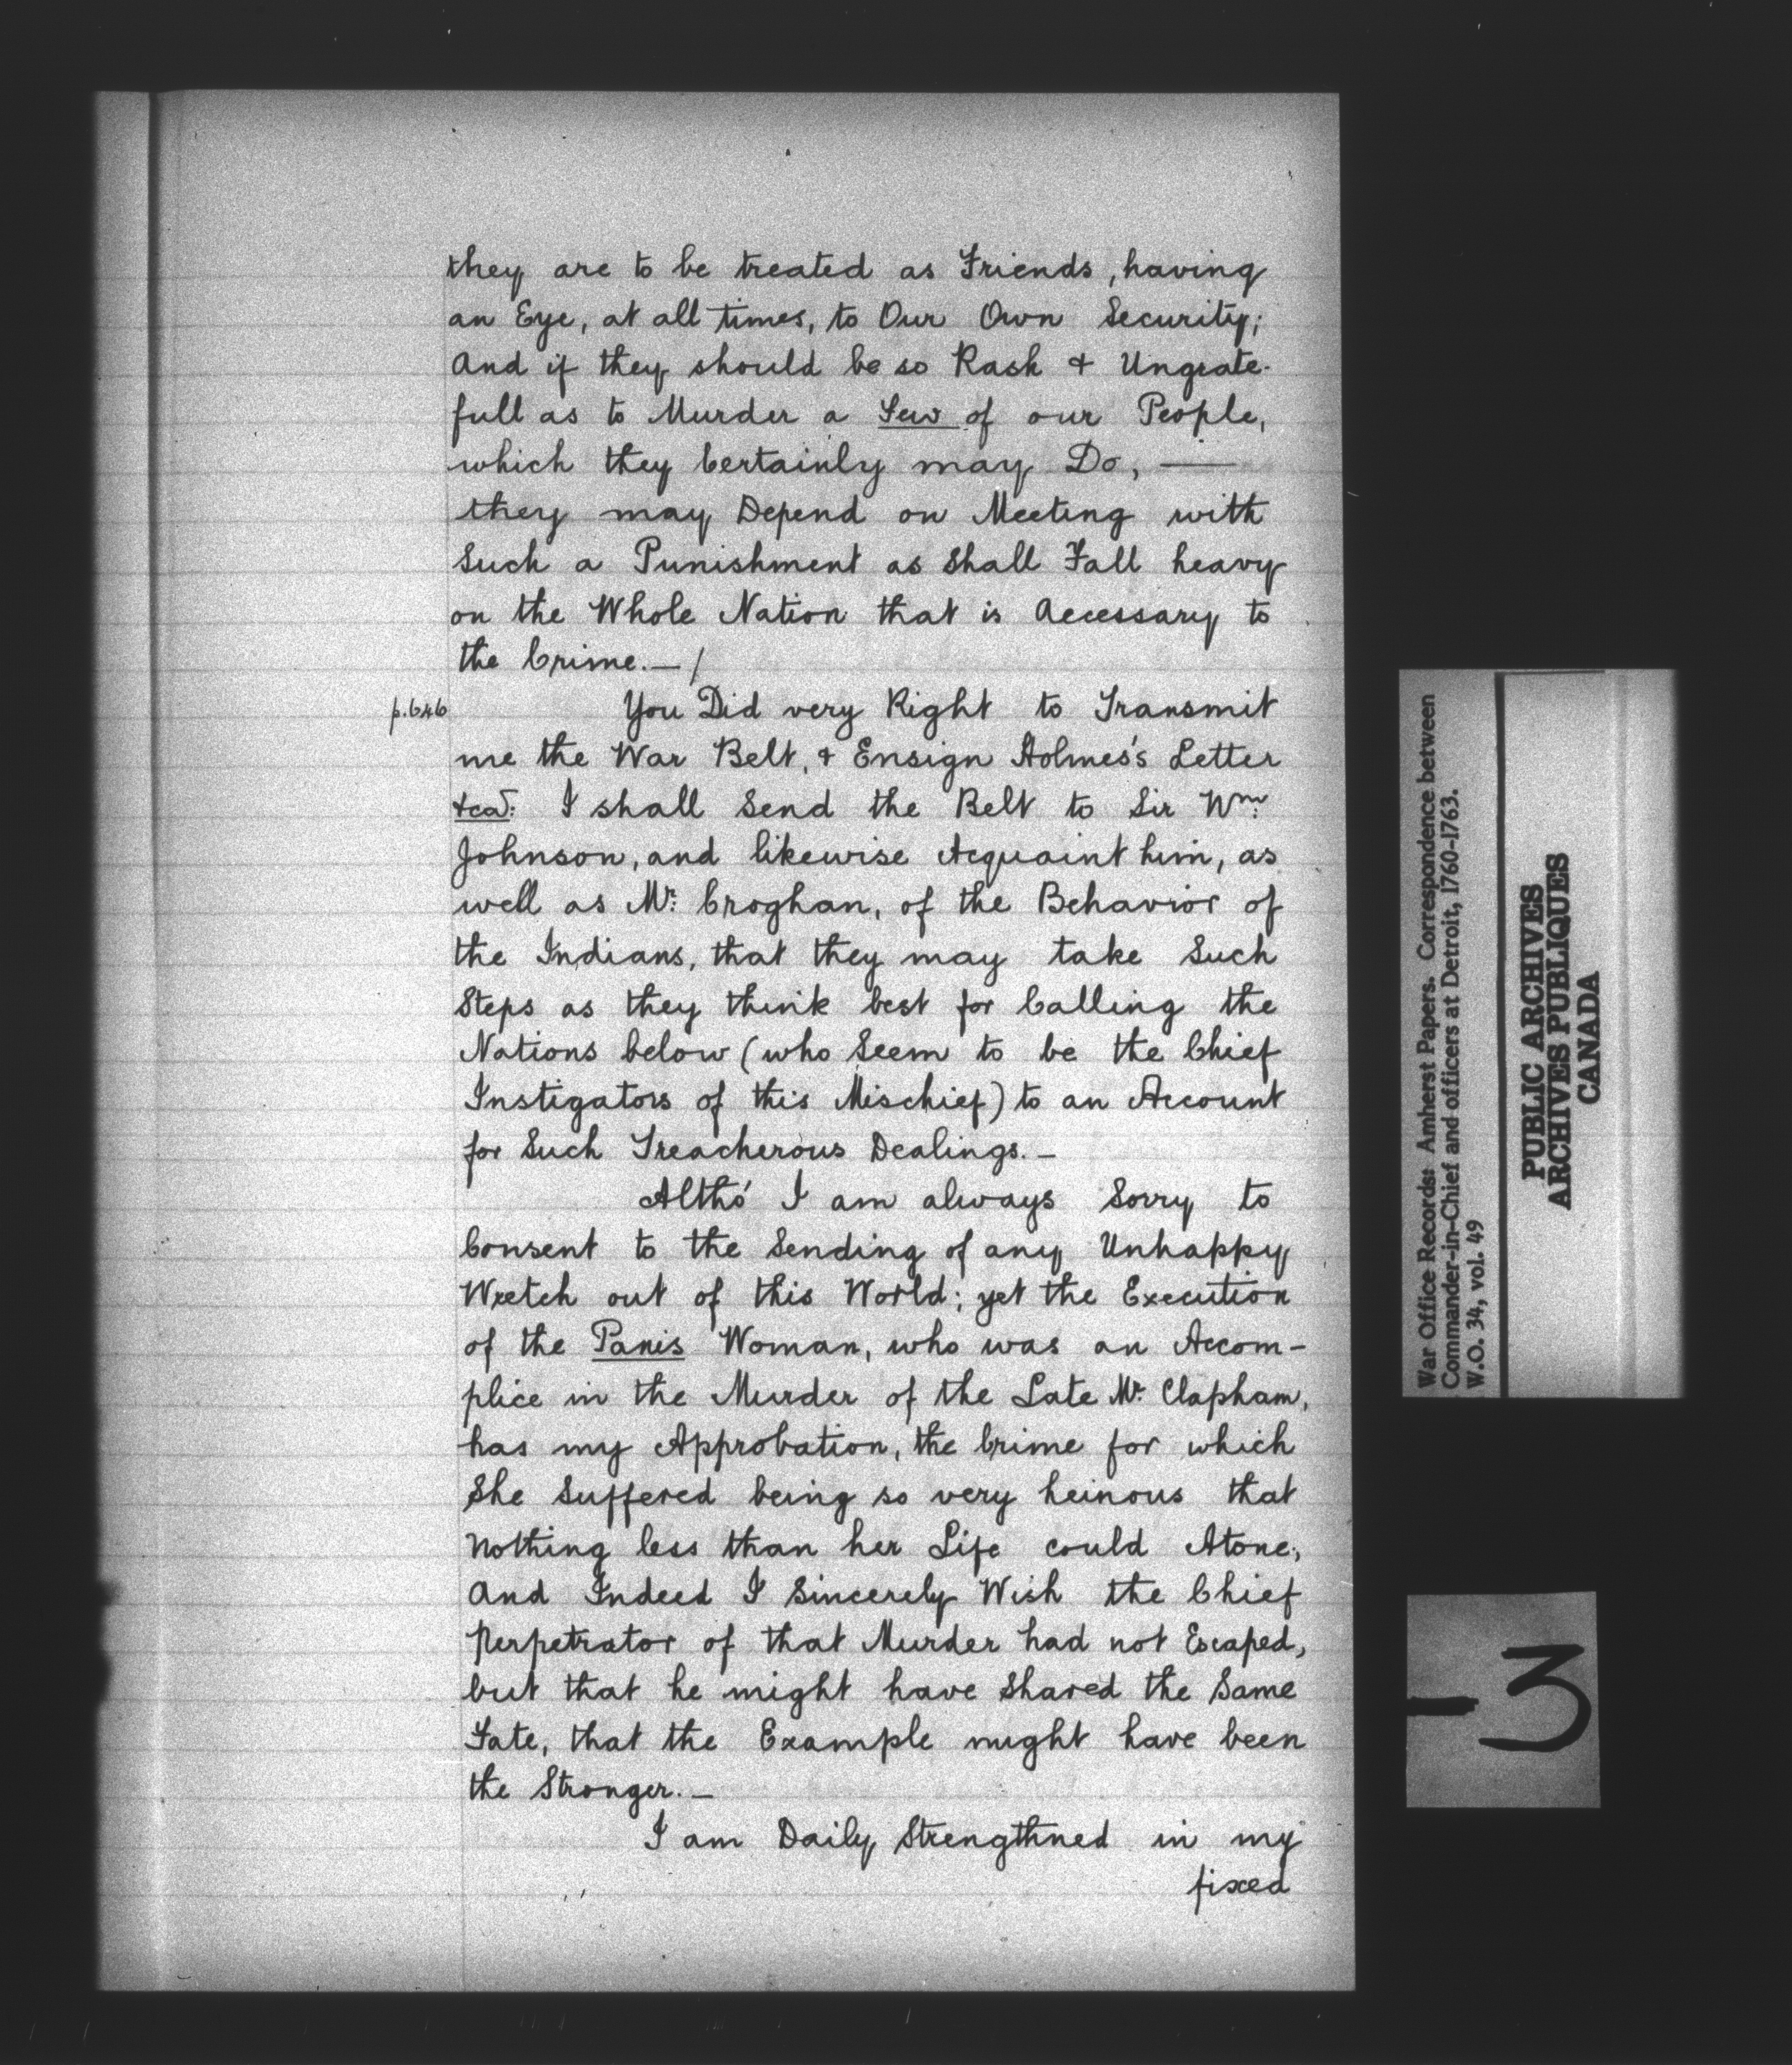 they are to be treated as Friends, having
an Eye, at all times, to Our Own Security;
And if they should be so Rash & Ungrate-
full as to Murder a Few of our People,
which they Certainly may Do, —
they may Depend on Meeting with
Such a Punishment as Shall Fall heavy
on the Whole Nation that is Accessary to
the Crime. — /
p. 646
You Did very Right to Transmit
me the War Belt, & Ensign Holmes's Letter
&ca: I shall Send the Belt to Sir Wm:
Johnson, and likewise Acquaint him, as
well as Mr: Croghan, of the Behavior of
the Indians, that they may take Such
Steps as they think best for Calling the
Nations below (who Seem to be the Chief
Instigators of this Mischief) to an Account
for Such Treacherous Dealings. —
Altho' I am always Sorry to
Consent to the Sending of any Unhappy
Wretch out of this World; yet the Execution
of the Panis Woman, who was an Accom-
plice in the Murder of the Late Mr. Clapham,
has my Approbation, the Crime for which
She Suffered being so very heinous that
Nothing less than her Life could Atone;
And Indeed I Sincerely Wish the Chief
Perpetrator of that Murder had not Escaped,
but that he might have Shared the Same
Fate, that the Example might have been
the Stronger. —
I am Daily Strengthned in my
fixed
War Office Records: Amherst Papers. Correspondence between
Commander-in-Chief and officers at Detroit, 1760-1763.
W.O. 34, vol. 49
PUBLIC ARCHIVES
ARCHIVES PUBLIQUES
CANADA
-3